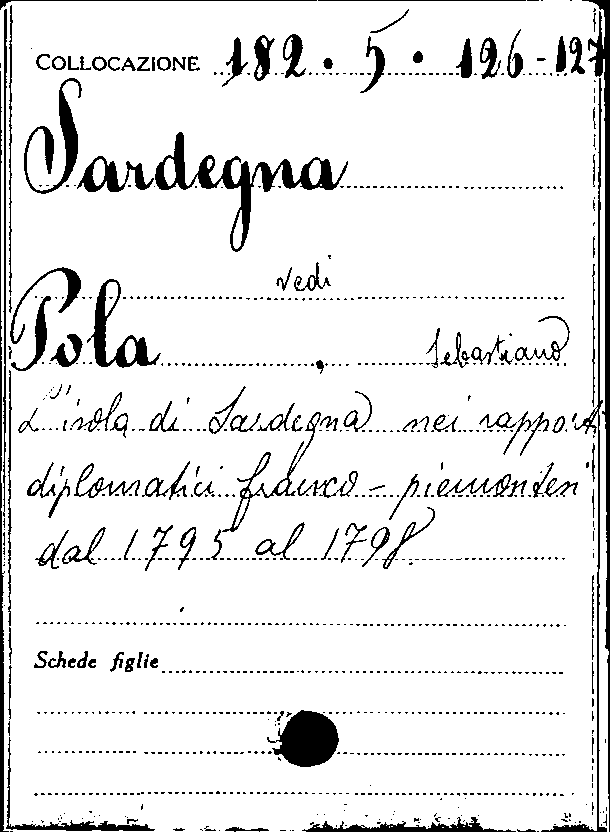 COLLOCAZIONE 182.5.126-127
Sardegna
vedi
Pola, Sebastiano
L'isola di Sardegna nei rapporti
diplomatici franco-piemontesi
dal 1795 al 1798.
Schede figlie